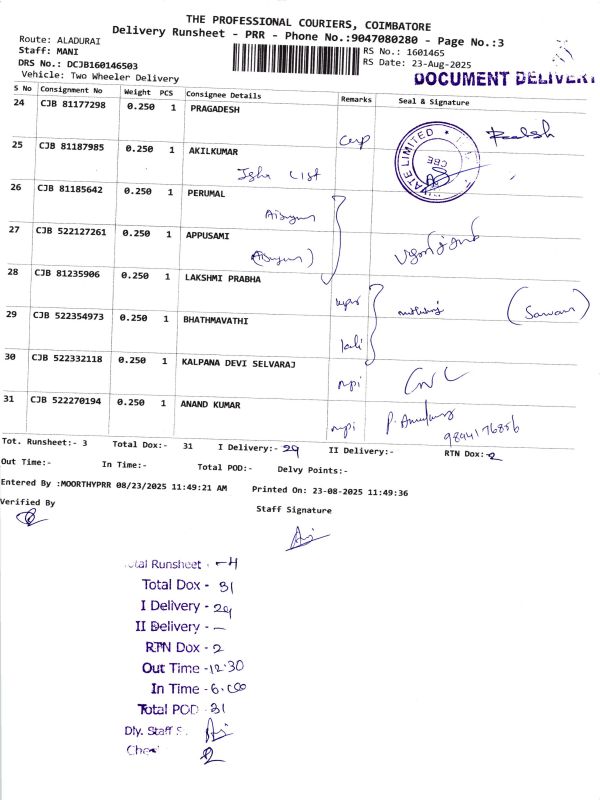 THE PROFESSIONAL COURIERS, COIMBATORE
Delivery Runsheet - PRR - Phone No.:9047080280 - Page No.:3
Route: ALADURAI
Staff: MANI
RS No.: 1601465
DRS No.: DCJB160146503
RS Date: 23-Aug-2025
Vehicle: Two Wheeler Delivery
DOCUMENT DELIVERY
S No Consignment No Weight PCS Consignee Details Remarks Seal & Signature
24 CJB 81177298 0.250 1 PRAGADESH
ATE LIMITED
CBE
25 CJB 81187985 0.250 1 AKILKUMAR
26 CJB 81185642 0.250 1 PERUMAL
27 CJB 522127261 0.250 1 APPUSAMI
28 CJB 81235906 0.250 1 LAKSHMI PRABHA
(Sawan)
29 CJB 522354973 0.250 1 BHATHMAVATHI
30 CJB 522332118 0.250 1 KALPANA DEVI SELVARAJ
mpi
31 CJB 522270194 0.250 1 ANAND KUMAR
mpi
9894176856
Tot. Runsheet:- 3 Total Dox:- 31 I Delivery:- 29 II Delivery:- RTN Dox:- 2
Out Time:- In Time:- Total POD:- Delvy Points:-
Entered By :MOORTHYPRR 08/23/2025 11:49:21 AM Printed On: 23-08-2025 11:49:36
Verified By
Staff Signature
Total Runsheet - 4
Total Dox - 31
I Delivery - 29
II Delivery - —
RTN Dox - 2
Out Time - 12.30
In Time - 6.00
Total POD - 31
Dly. Staff S.